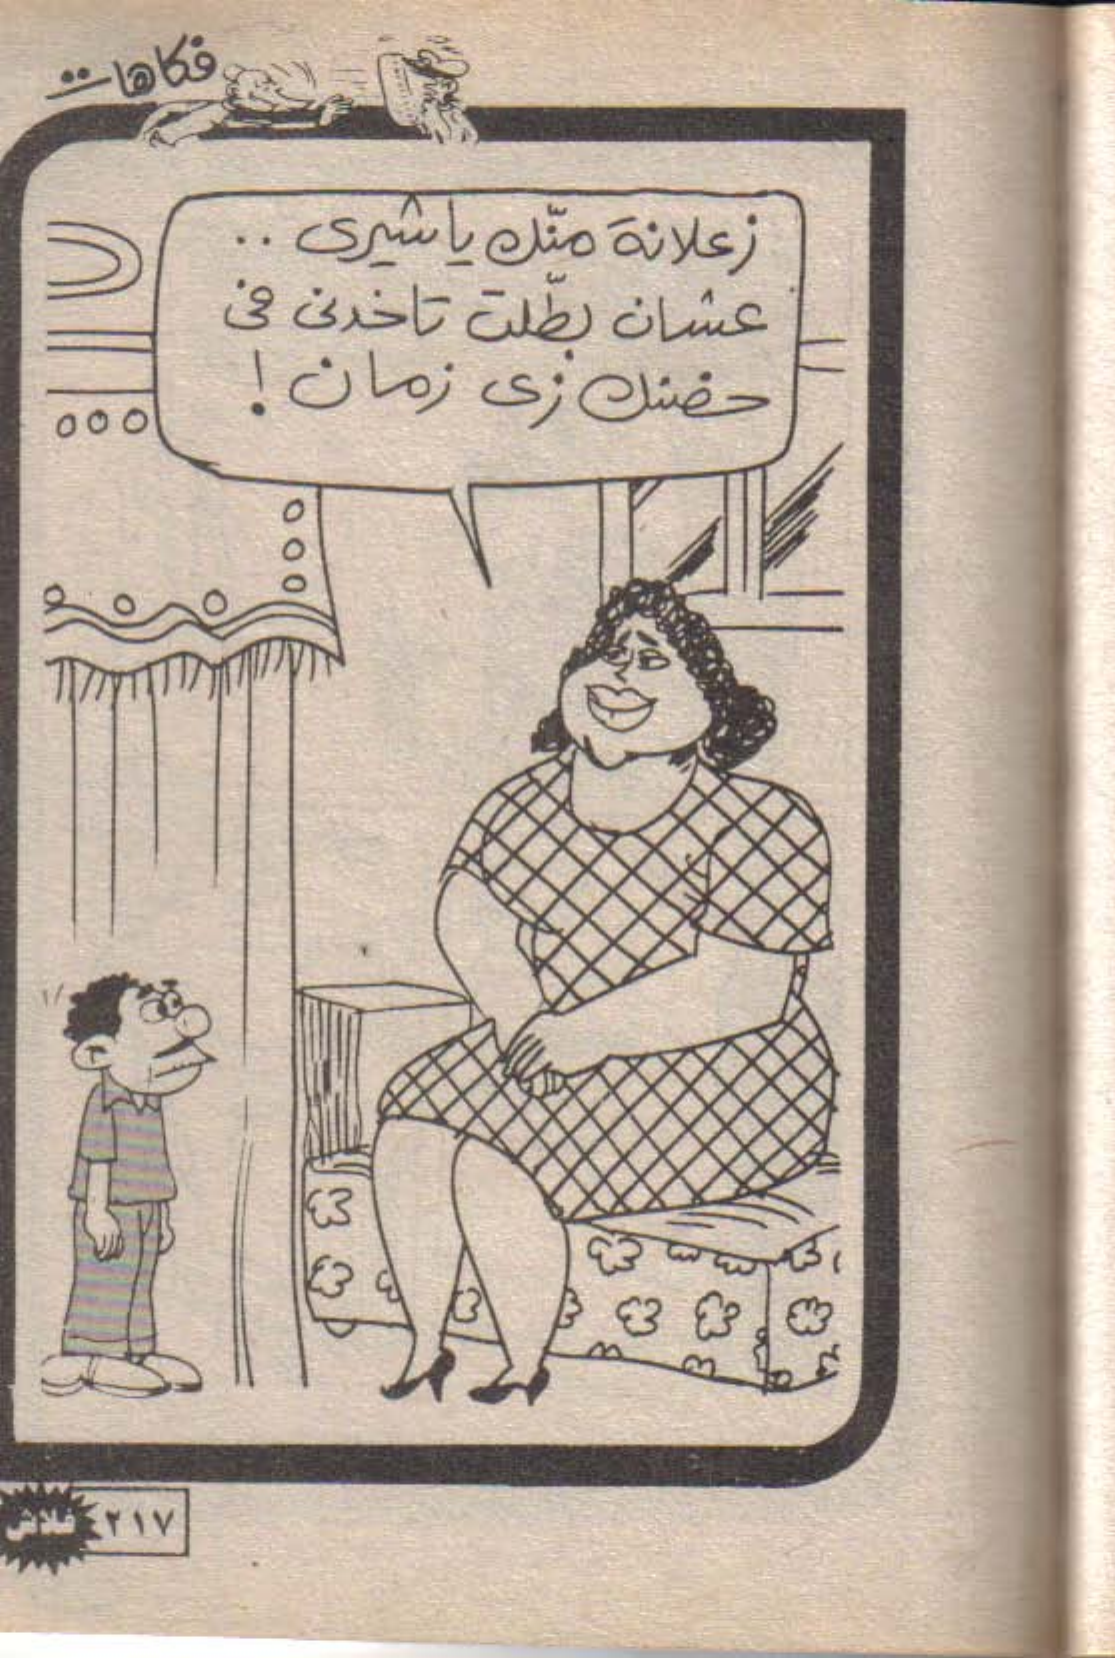 فكاهات
زعلانة منّك يا شيرى ..
عشان بطّلت تاخدنى فى
حضنك زى زمان !
٢١٧
فلاش